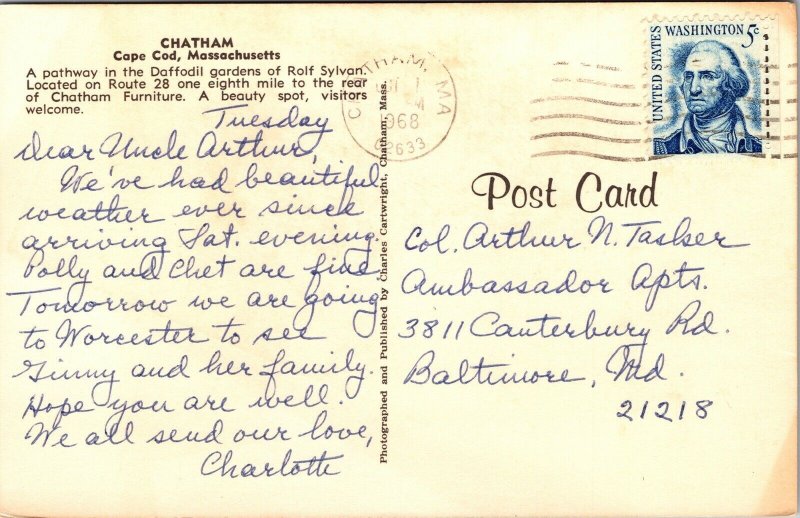 CHATHAM
Cape Cod, Massachusetts
A pathway in the Daffodil gardens of Rolf Sylvan.
Located on Route 28 one eighth mile to the rear
of Chatham Furniture. A beauty spot, visitors
welcome.
Tuesday
Dear Uncle Arthur,
We've had beautiful
weather ever since
arriving Sat. evening.
Polly and Chet are fine.
Tomorrow we are going
to Worcester to see
Ginny and her family.
Hope you are well.
We all send our love,
Charlotte
Photographed and Published by Charles Cartwright, Chatham, Mass.
CHATHAM, MA
1968
02633
UNITED STATES
WASHINGTON 5c
Post Card
Col. Arthur N. Tasker
Ambassador Apts.
3811 Canterbury Rd.
Baltimore, Md.
21218